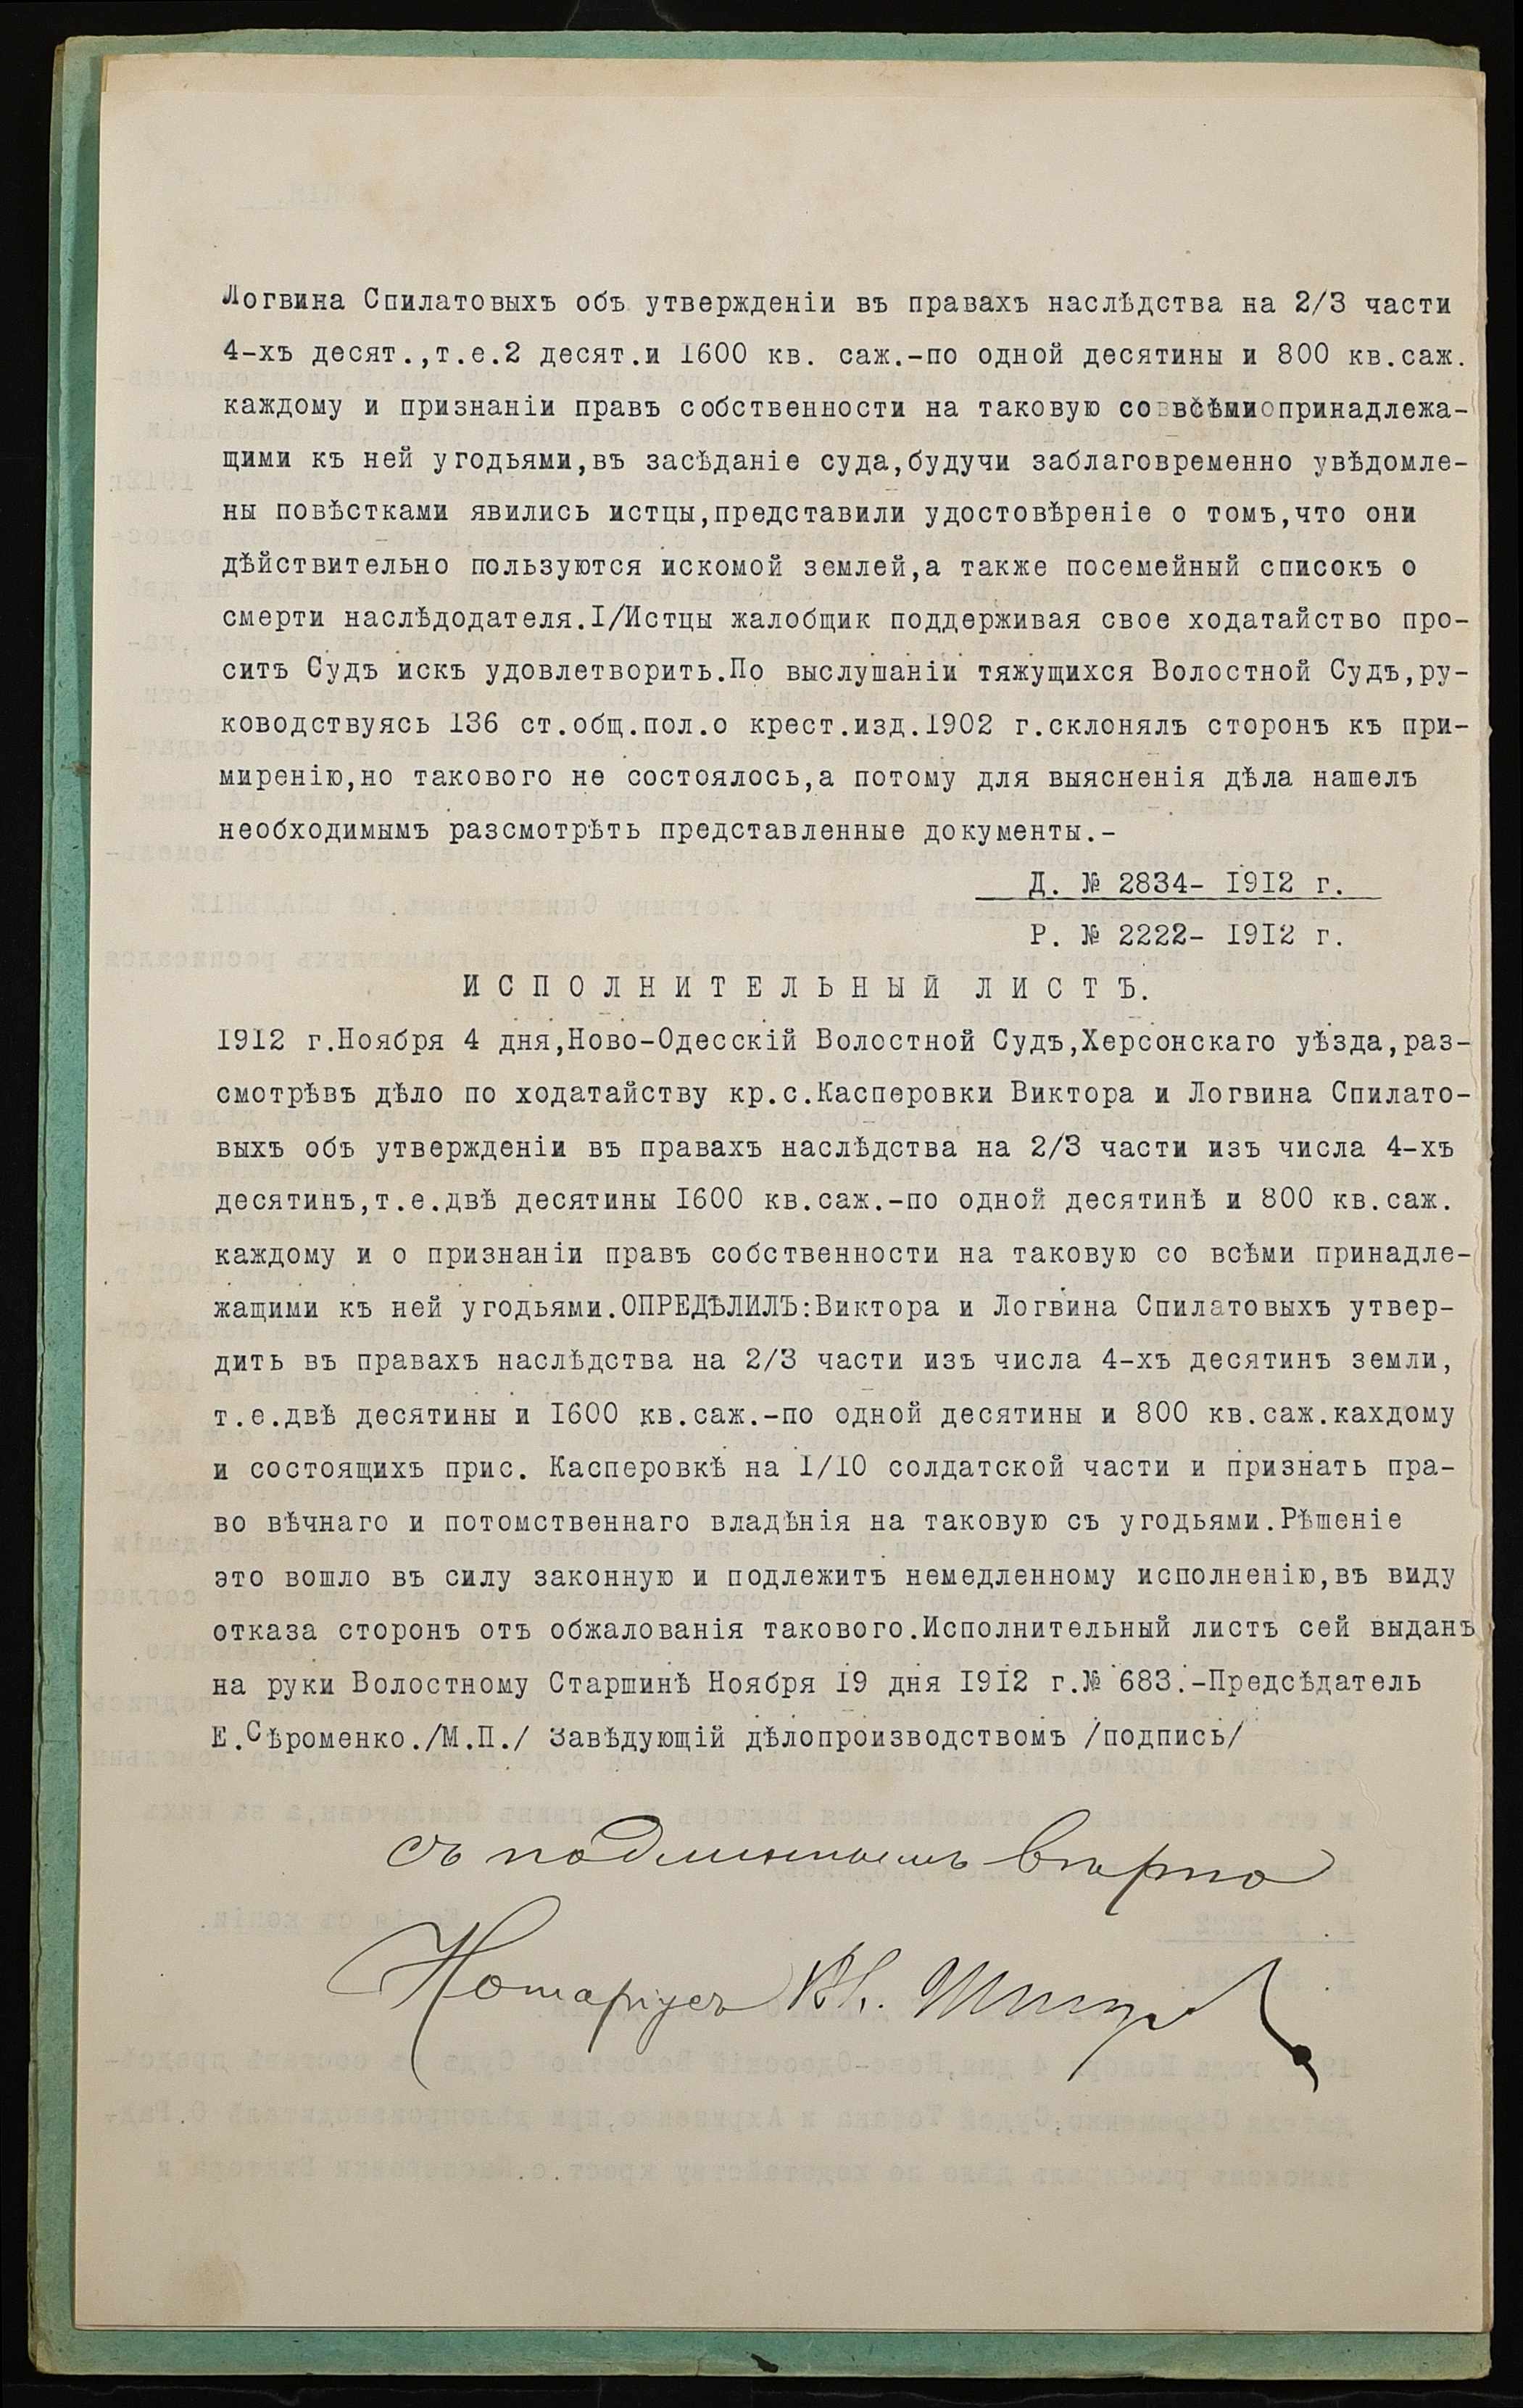 Логвина Спилатовыхъ объ утвержденіи въ правахъ наслѣдства на 2/3 части
4-хъ десят.,т.е.2 десят.и 1600 кв. саж.-по одной десятины и 800 кв.саж.
каждому и признаніи правъ собственности на таковую со всѣми принадлежа-
щими къ ней угодьями,въ засѣданіе суда,будучи заблаговременно увѣдомле-
ны повѣстками явились истцы,представили удостовѣреніе о томъ,что они
дѣйствительно пользуются искомой землей,а также посемейный списокъ о
смерти наслѣдодателя.I/Истцы жалобщик поддерживая свое ходатайство про-
ситъ Судъ искъ удовлетворить.По выслушаніи тяжущихся Волостной Судъ,ру-
ководствуясь 136 ст.общ.пол.о крест.изд.1902 г.склонялъ сторонъ къ при-
миренію,но такового не состоялось,а потому для выясненія дѣла нашелъ
необходимымъ разсмотрѣть представленные документы.-
Д. № 2834- I9I2 г.
Р. № 2222- I9I2 г.
И С П О Л Н И Т Е Л Ь Н Ы Й Л И С Т Ъ.
1912 г.Ноября 4 дня,Ново-Одесскій Волостной Судъ,Херсонскаго уѣзда,раз-
смотрѣвъ дѣло по ходатайству кр.с.Касперовки Виктора и Логвина Спилато-
выхъ объ утвержденіи въ правахъ наслѣдства на 2/3 части изъ числа 4-хъ
десятинъ,т.е.двѣ десятины I600 кв.саж.-по одной десятинѣ и 800 кв.саж.
каждому и о признаніи правъ собственности на таковую со всѣми принадле-
жащими къ ней угодьями.ОПРЕДѢЛИЛЪ:Виктора и Логвина Спилатовыхъ утвер-
дить въ правахъ наслѣдства на 2/3 части изъ числа 4-хъ десятинъ земли,
т.е.двѣ десятины и I600 кв.саж.-по одной десятины и 800 кв.саж.кахдому
и состоящихъ прис. Касперовкѣ на I/IO солдатской части и признать пра-
во вѣчнаго и потомственнаго владѣнія на таковую съ угодьями.Рѣшеніе
это вошло въ силу законную и подлежитъ немедленному исполненію,въ виду
отказа сторонъ отъ обжалованія такового.Исполнительный листъ сей выданъ
на руки Волостному Старшинѣ Ноября I9 дня I9I2 г.№ 683.-Предсѣдатель
Е.Сѣроменко./М.П./ Завѣдующій дѣлопроизводствомъ /подпись/
съ подлиннымъ вѣрно
Нотаріусъ